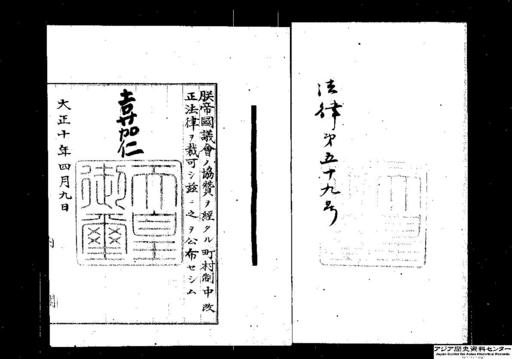 法律第五十九号
朕帝國議會ノ協賛ヲ經タル町村制中改
正法律ヲ裁可シ茲ニ之ヲ公布セシム
嘉仁
天皇御璽
大正十年四月九日
内
アジア歴史資料センター
Japan Center for Asian Historical Records